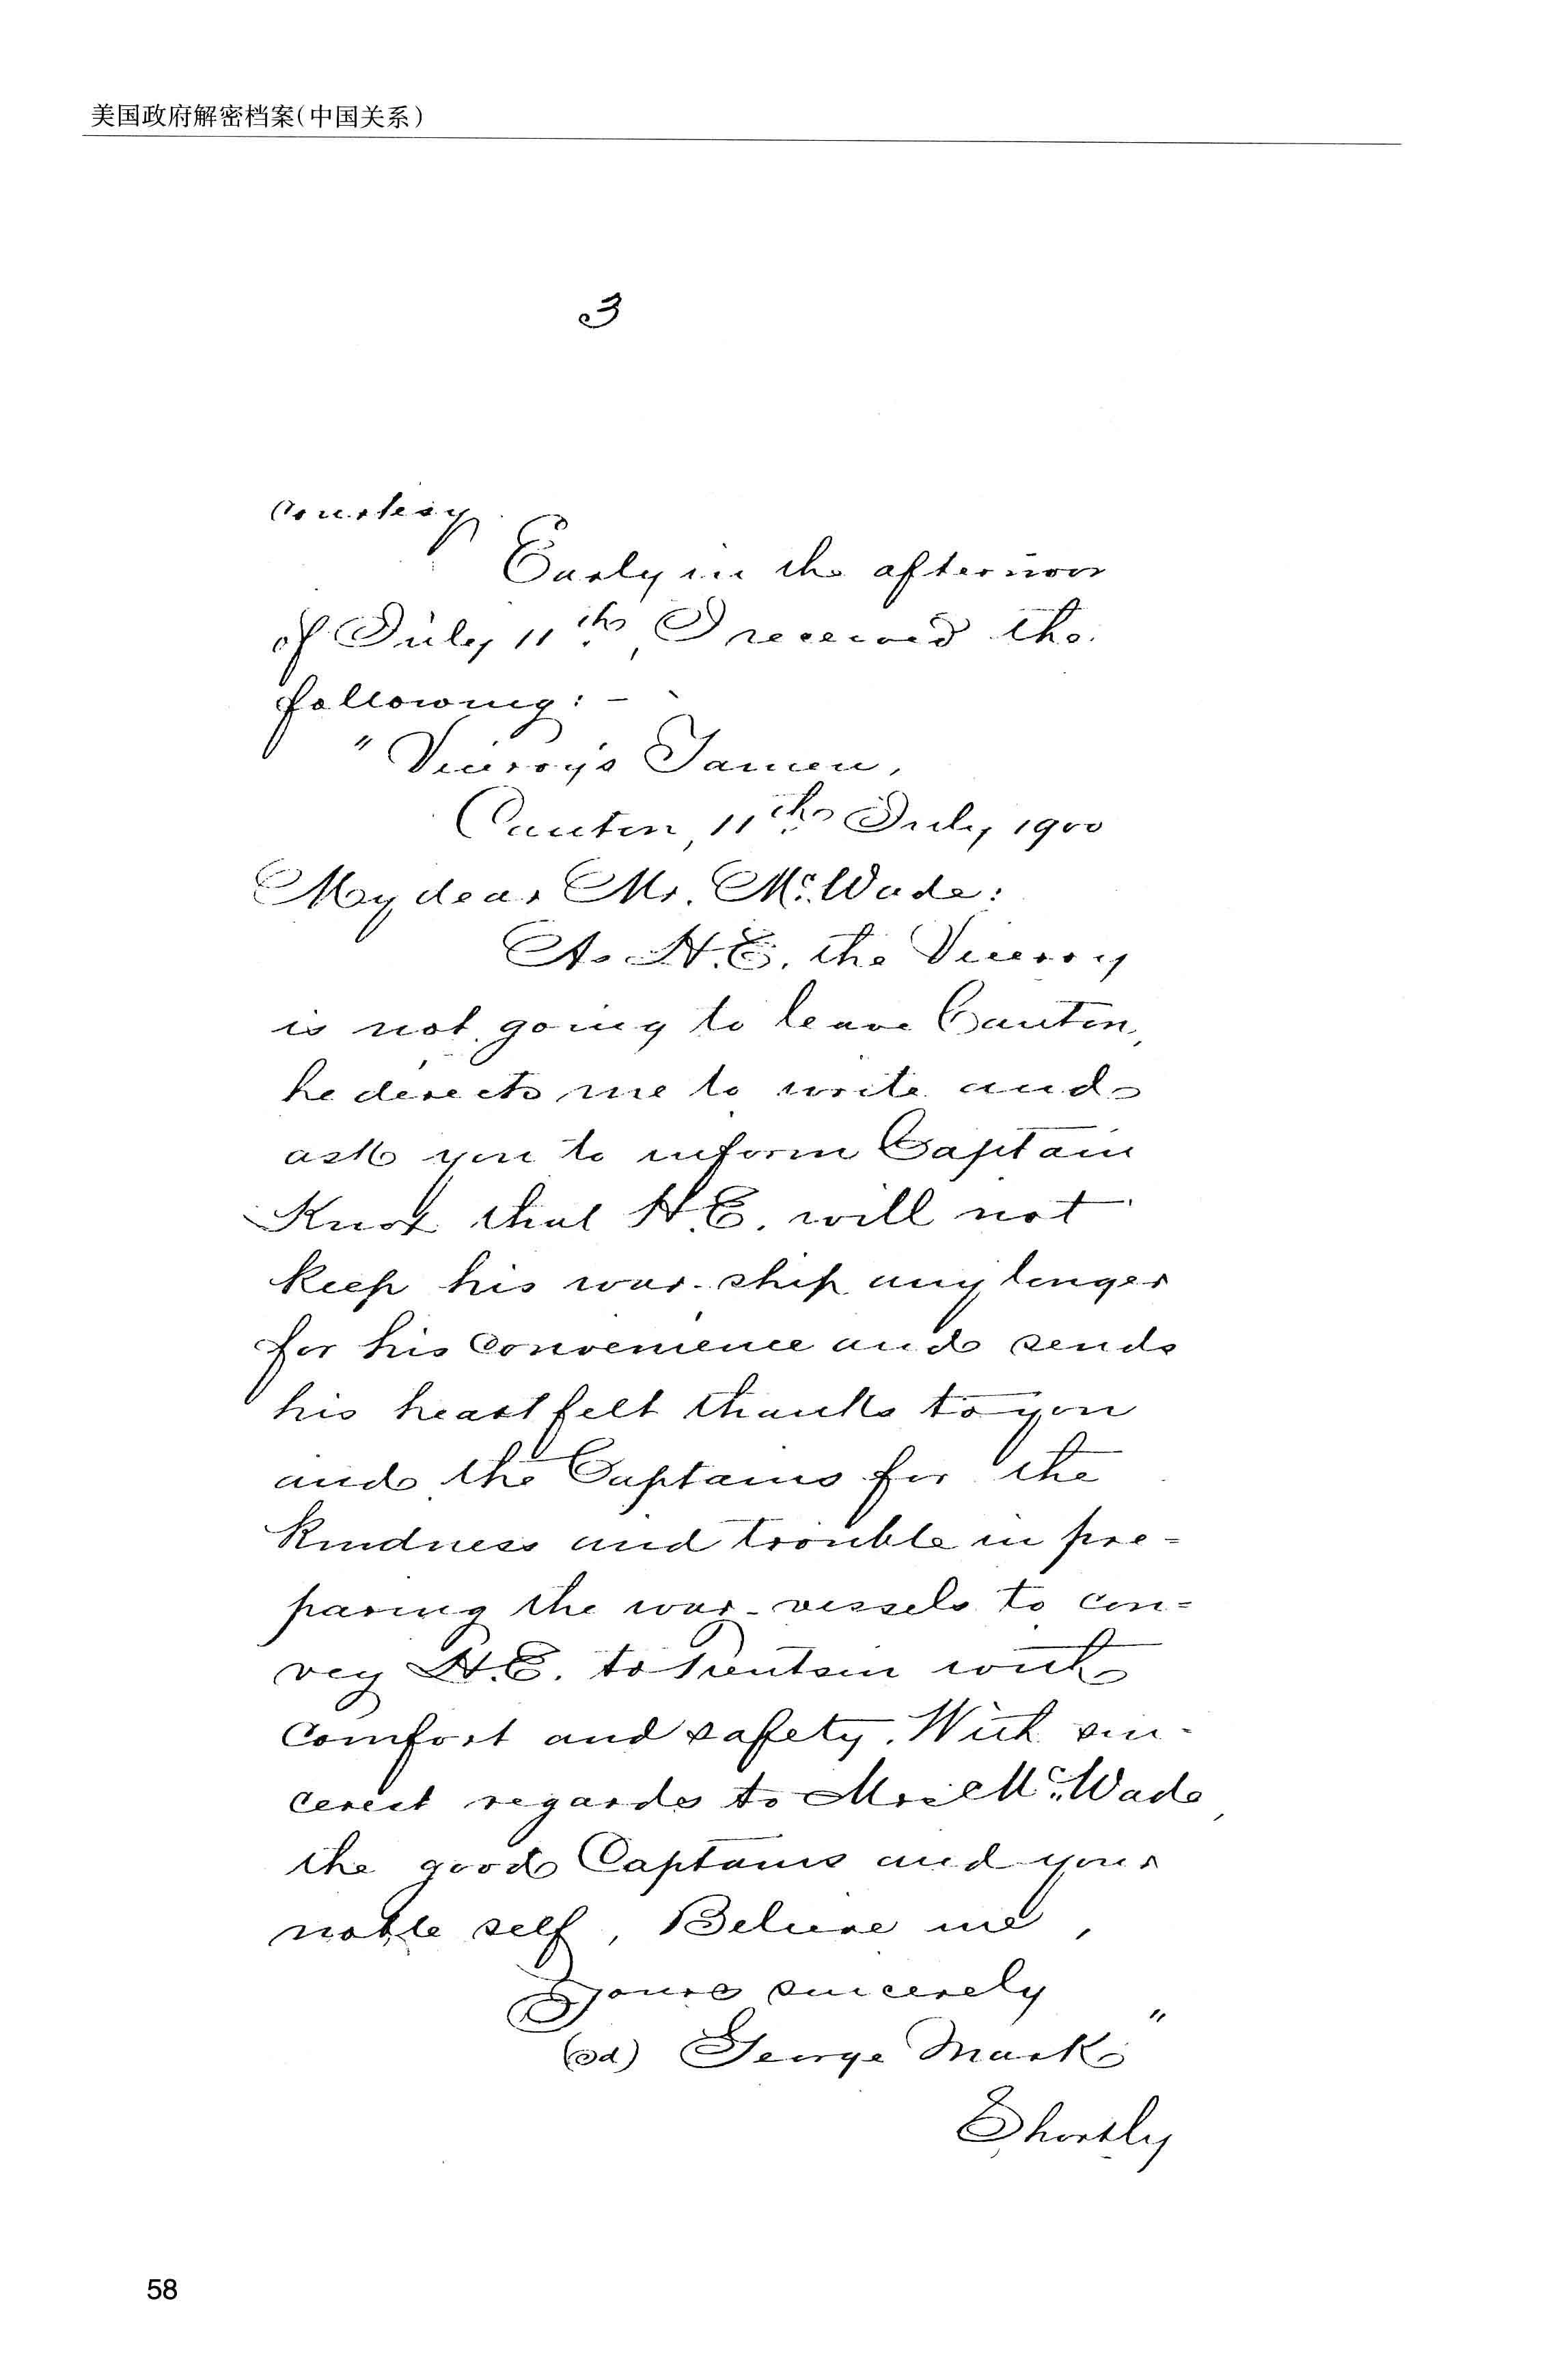 美国政府解密档案(中国关系)
3
Courtesy
Early in the afternoon
of July 11th, I received the
following: -
"Viceroy's Yamen,
Canton, 11th July, 1900
My dear Mr. McWade:
As H.E. the Viceroy
is not going to leave Canton,
he directs me to write and
ask you to inform Captain
that H.E. will not
keep his war-ship any longer
for his convenience and sends
his heartfelt thanks to you
and the Captains for the
kindness and trouble in pre-
paring the war-vessels to con-
vey H.E. to Tientsin with
comfort and saffety. With sin-
cerest regards to Mrs McWade,
the good Captains and your
noble self, Believe me,
Yours sincerely
(sd) George Mark"
Shortly
58